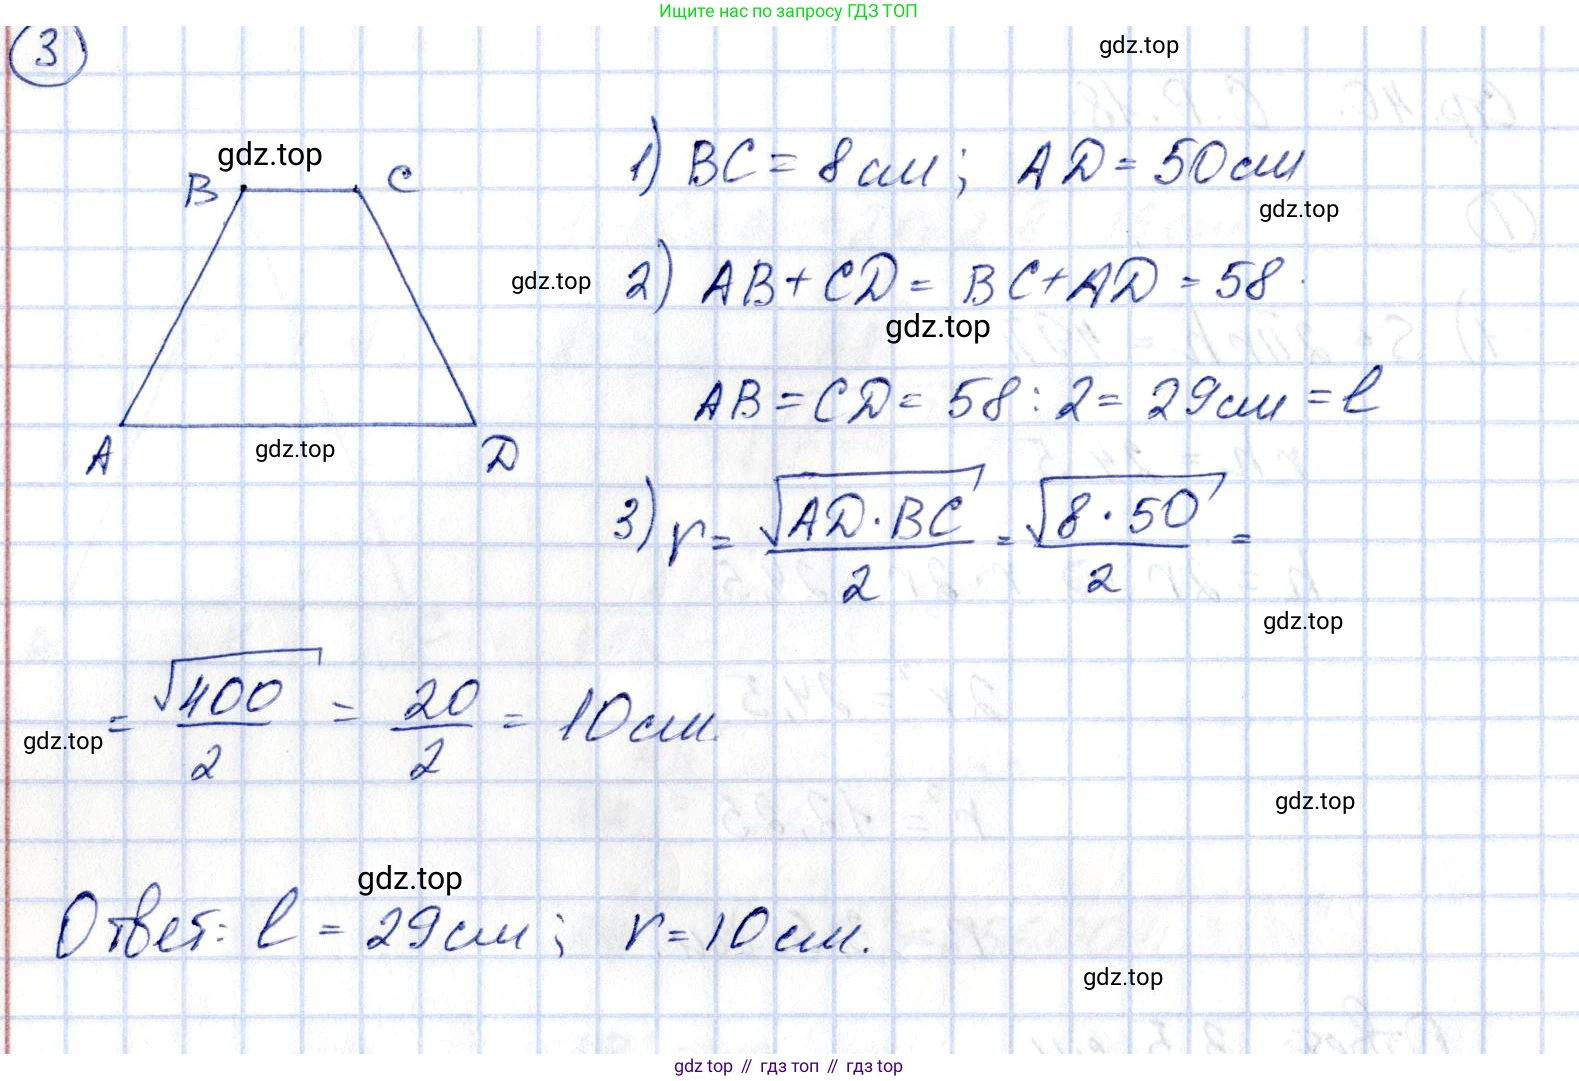 Ищите нас по запросу ГДЗ ТОП
3
gdz.top
gdz.top
B C
1) BC = 8 см; AD = 50 см
gdz.top
gdz.top
2) AB + CD = BC + AD = 58
gdz.top
AB = CD = 58 : 2 = 29 см = l
A D
gdz.top
3) r = √AD · BC / 2 = √8 · 50 / 2 =
gdz.top
= √400 / 2 = 20 / 2 = 10 см.
gdz.top
gdz.top
gdz.top
Ответ: l = 29 см; r = 10 см.
gdz.top
gdz.top // гдз топ // gdz.top